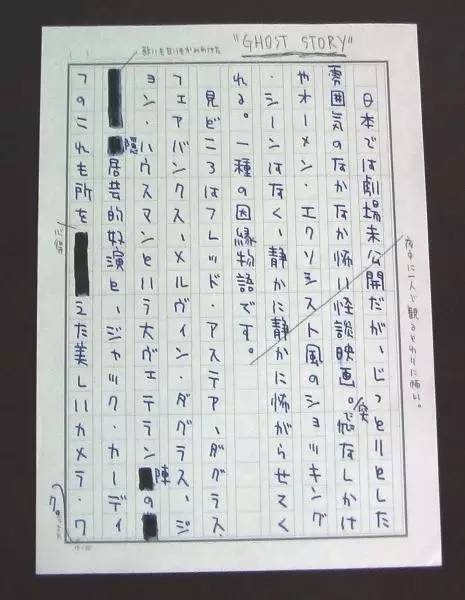 "GHOST STORY"
日本では劇場未公開だが、じっとりとした
雰囲気のなかなか怖い怪談映画。突飛なしかけ
やオーメン・エクソシスト風のショッキング
・シーンはなく、静かに静かに怖がらせてく
れる。一種の因縁物語です。
夜中に一人で観るとわりに怖い。
見どころはフレッド・アステア、ダグラス・
フェアバンクス、メルヴィン・ダグラス、ジ
ョン・ハウスマンという大ヴェテラン陣の
酸いも甘いもかみわけた
隠居芸的好演と、ジャック・カーディ
フのこれも所を心得えた美しいカメラ・ワ
ク。